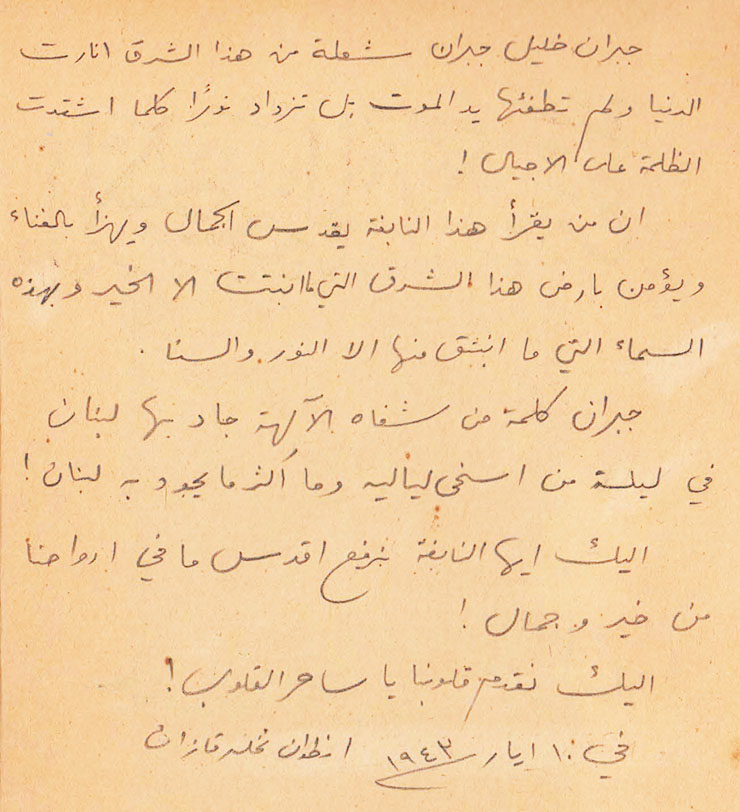 جبران خليل جبران شعلة من هذا الشرق انارت
الدنيا ولم تطفئها يد الموت بل تزداد نورًا كلما اشتدت
الظلمة على الاجيال !
ان من يقرأ هذا النابغة يقدس الجمال ويهزأ بالفناء
ويؤمن بارض هذا الشرق التي ما انبتت الا الخير وبهذه
السماء التي ما انبثق منها الا النور والسنا .
جبران كلمة من شفاه الآلهة جاد بها لبنان
في ليلة من اسخى لياليه وما أكثر ما يجود به لبنان !
اليك ايها النابغة نرفع اقدس ما في ارواحنا
من خير وجمال !
اليك نقدم قلوبنا يا ساحر القلوب !
في ١٠ ايار ١٩٤٣ انطوان نخله قازان